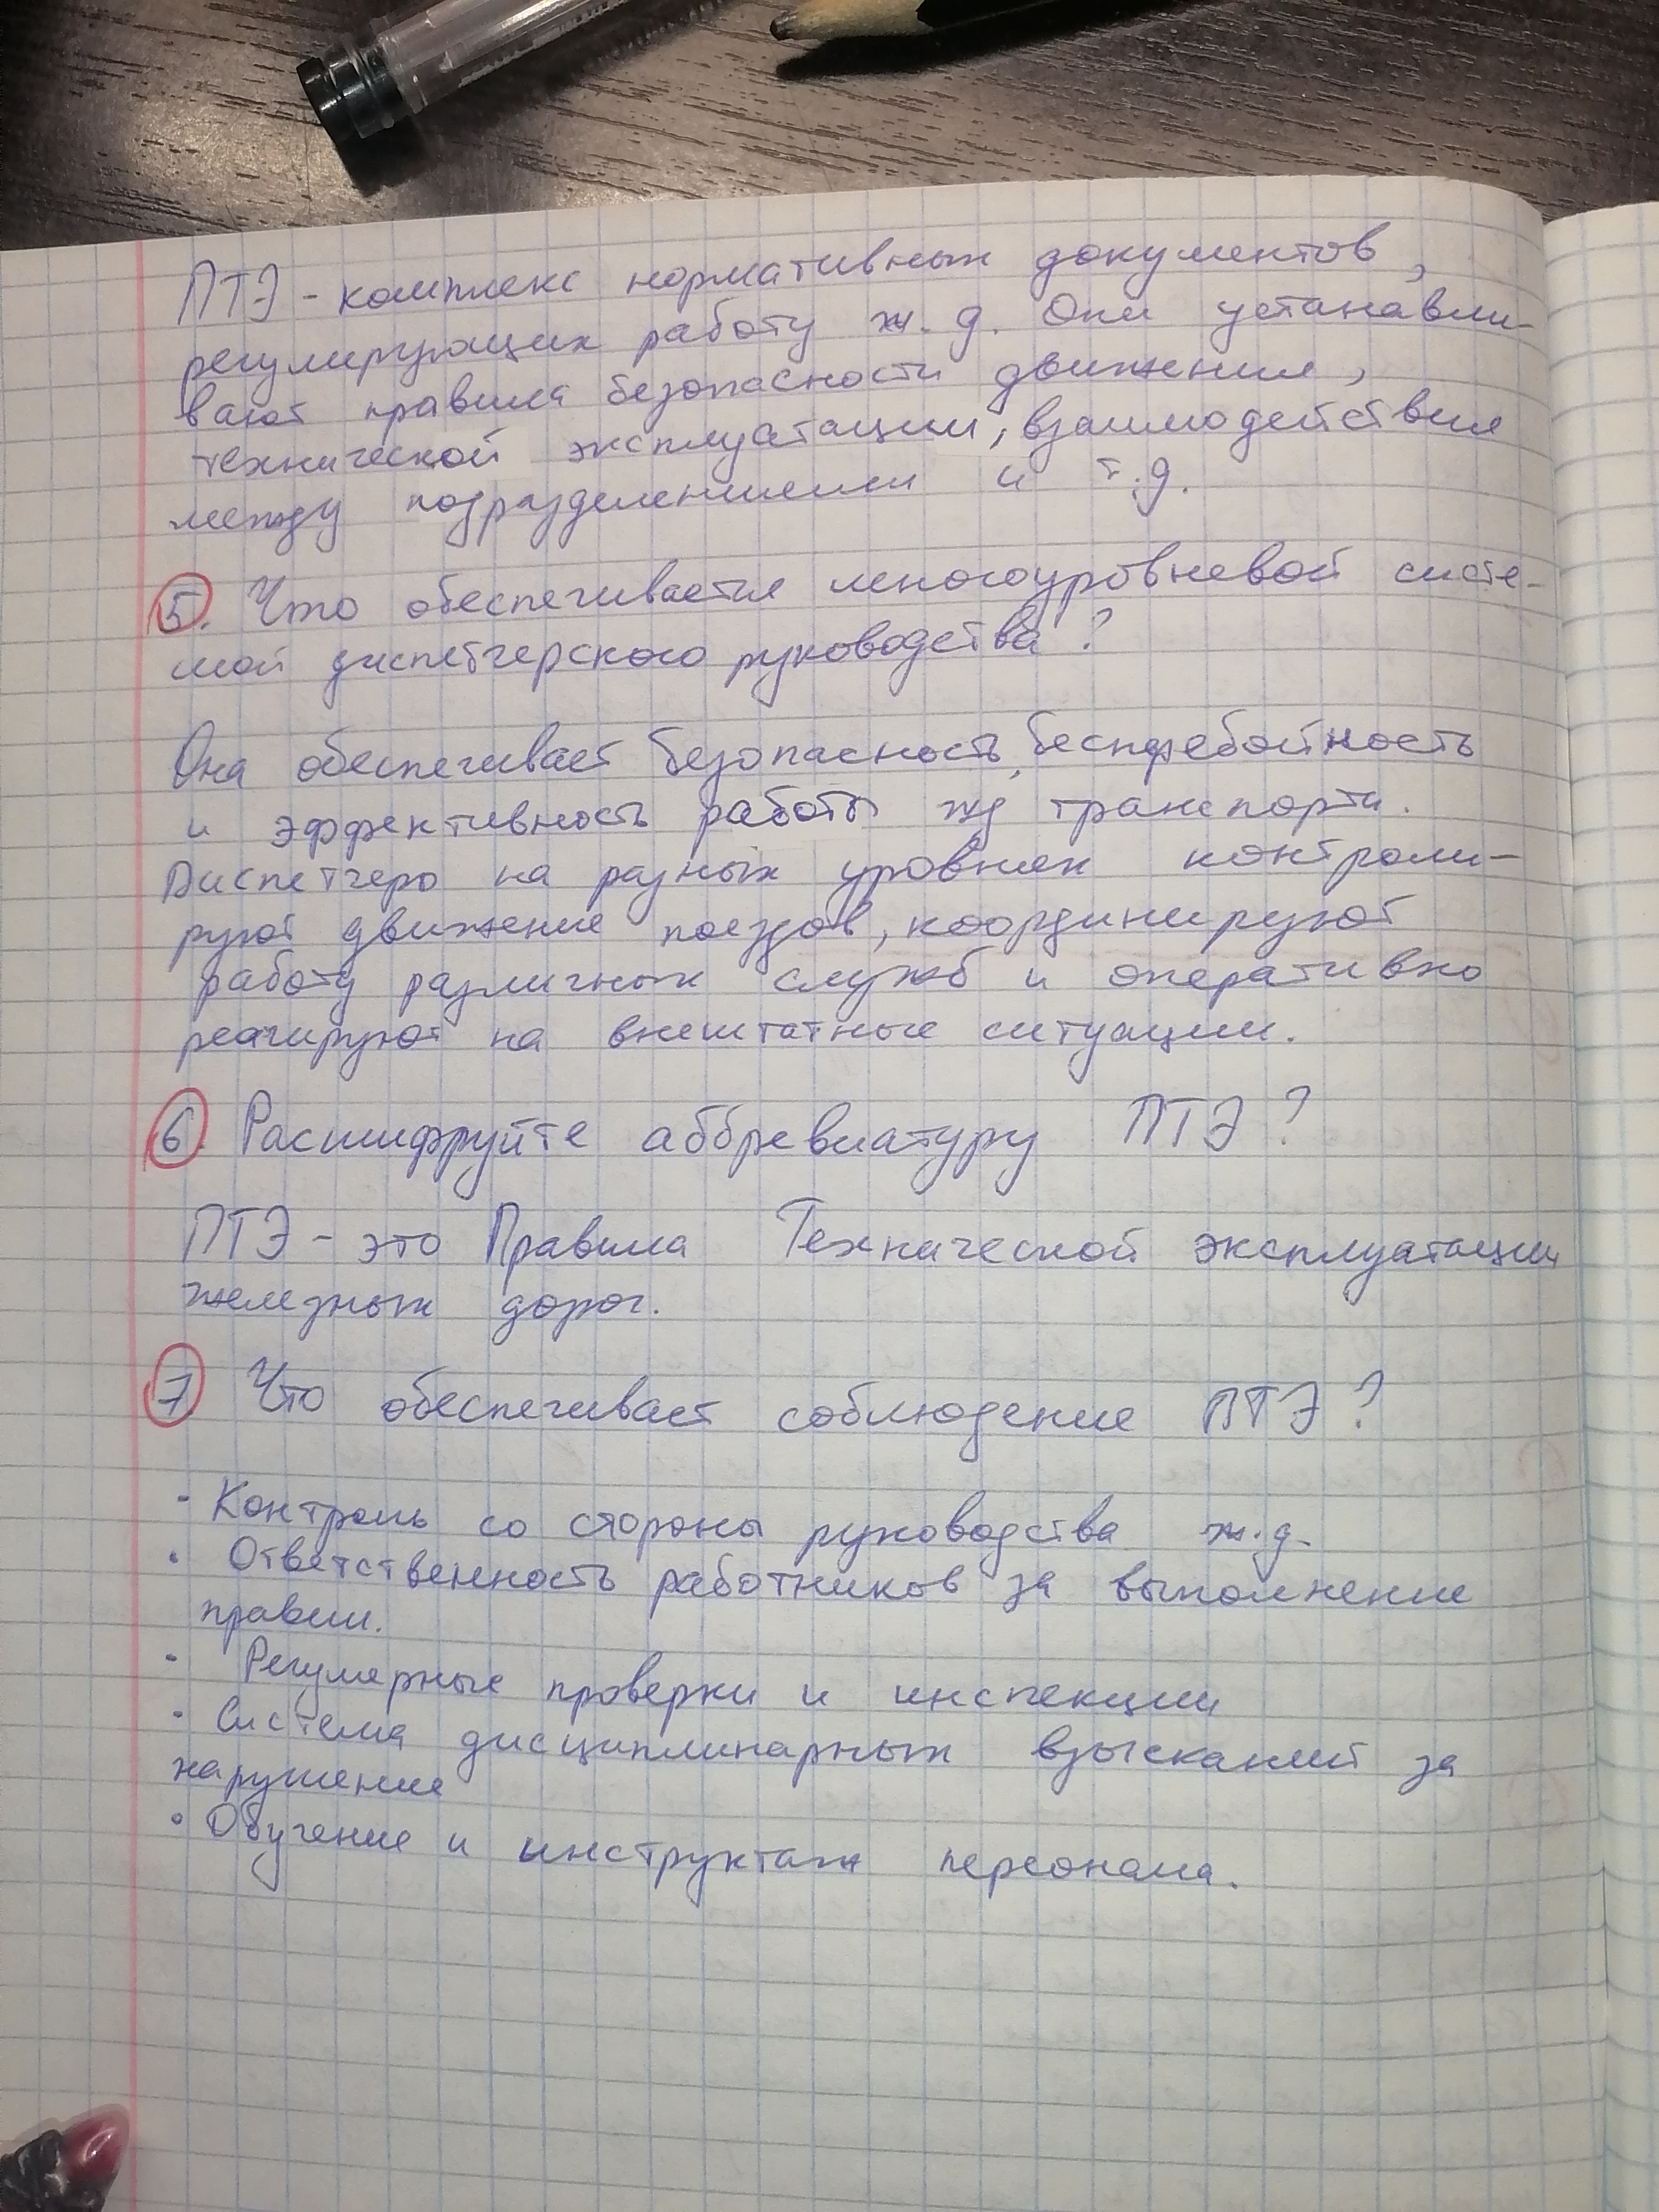 ПТЭ - комплекс нормативных документов,
регулирующих работу ж.д. Они устанавли-
вают правила безопасности движения,
технической эксплуатации, взаимодействия
между подразделениями и т.д.
5. Что обеспечивается многоуровневой систе-
мой диспетчерского руководства?
Она обеспечивает безопасность, бесперебойность
и эффективность работы жд транспорта.
Диспетчера на разных уровнях контроли-
руют движение поездов, координируют
работу различных служб и оперативно
реагируют на внештатные ситуации.
6. Расшифруйте аббревиатуру ПТЭ?
ПТЭ - это Правила Технической эксплуатации
железных дорог.
7. Что обеспечивает соблюдение ПТЭ?
· Контроль со стороны руководства ж.д.
· Ответственность работников за выполнение
правил.
· Регулярные проверки и инспекции
· Система дисциплинарных взысканий за
нарушение
· Обучение и инструктаж персонала.